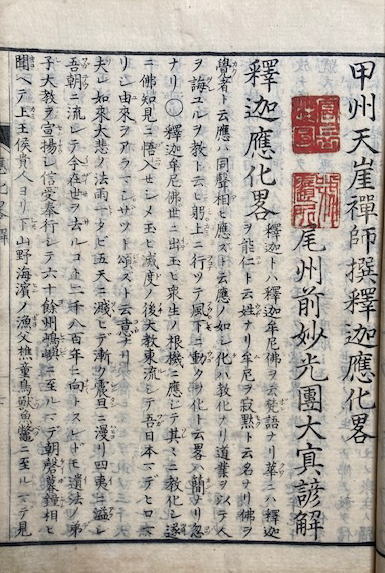 甲州天崖禪師撰釋迦應化畧
尾州前妙光團大寘諺解
釋迦應化畧 釋迦トハ釋迦牟尼佛ヲ云梵語ナリ華ニハ釋迦
ヲ能仁ト云姓ナリ牟尼ヲ寂黙ト云名ナリ佛ヲ
覺者ト云應ハ同聲相ヒ應ズト云應ノ如シ化ハ教化ナリ道業ヲ以テ人
ヲ誨ユルヲ教ト云ヒ躬上ニ行ツテ風下ニ動クヲ化ト云畧ハ簡ナリ忽
ナリ○釋迦牟尼佛世ニ出玉ヒ衆生ノ根機ニ應シテ其ニ教化シ遂
ニ佛知見ニ悟入セシメ玉ヒ滅度ノ後大教東流シテ吾日本マデヒロコ
リシ由來ヲアラマシサツト頌スト云意ナリ
夫レ如來大悲ノ法雨一タビ五天ニ濺ヒデ漸ク震旦ニ漫リ四夷ニ溢レ
吾朝ニ流レテ今在世ヲ去ルコ𬼀二千八百年ニ向トスレドモ遺法ノ弟
子大教ヲ宣揚シ信受奉行シテ六十餘州嶋嶼ニ至ルマデ朝磬暮鐘相ヒ
聞ヘテ上王侯貴人ヨリ下山野海濱ノ漁父樵童鳥獸魚鼈ニ至ルマデ見